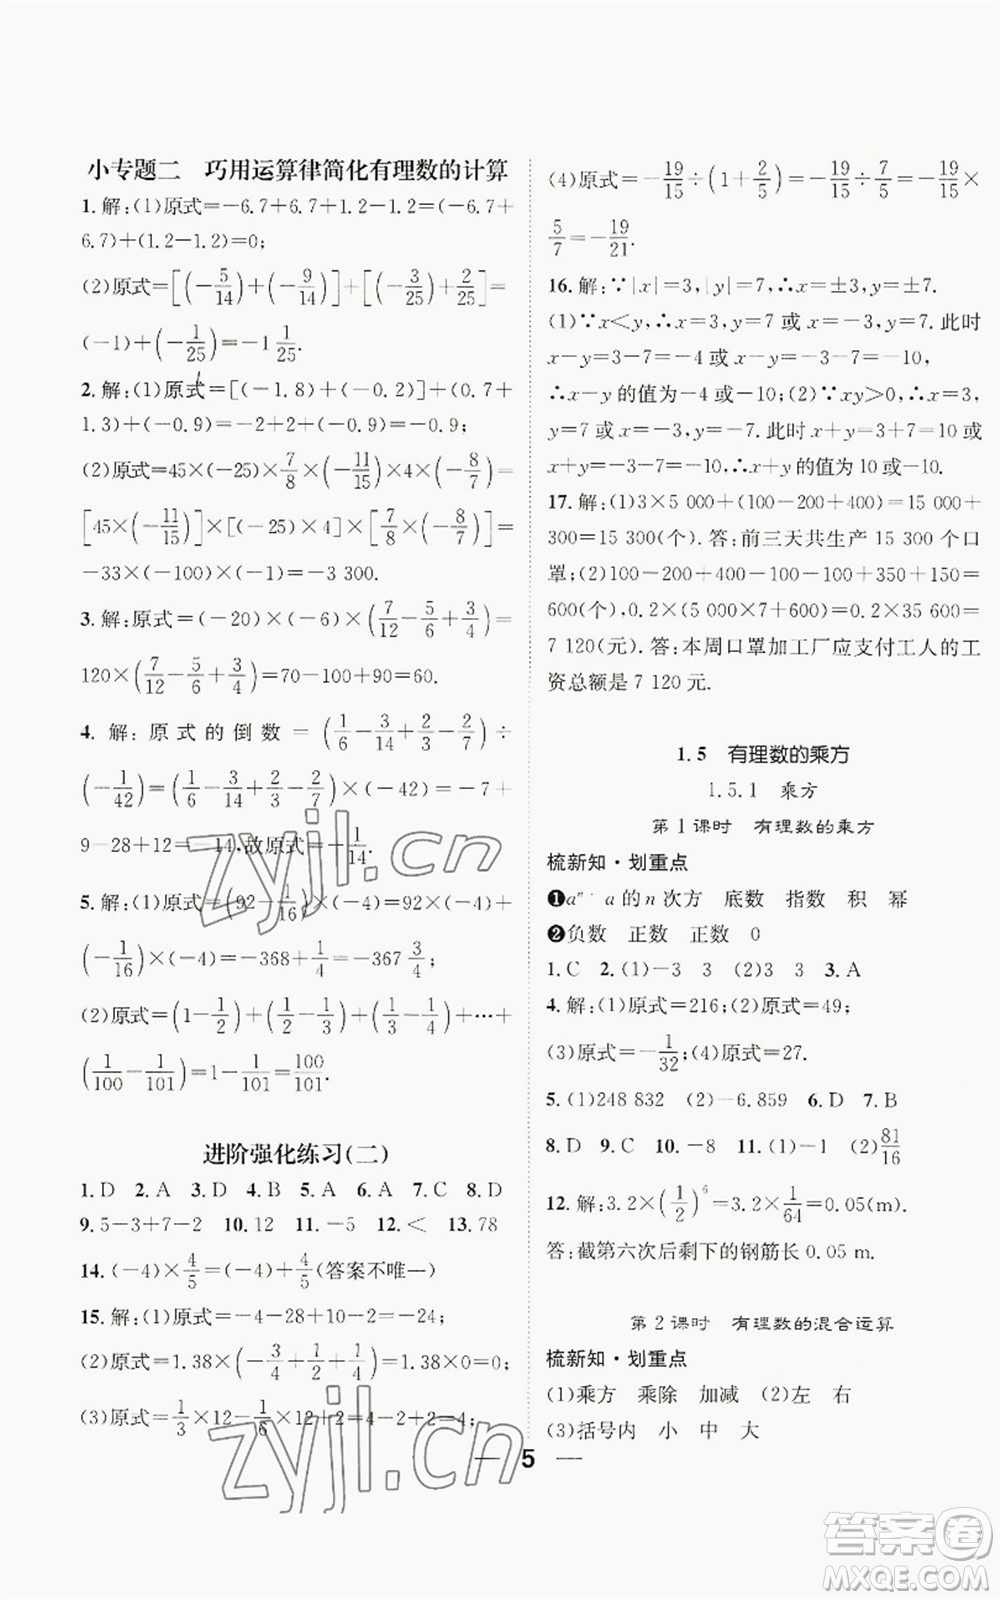 小专题二　巧用运算律简化有理数的计算
1.解:(1)原式=-6.7+6.7+1.2-1.2=(-6.7+
6.7)+(1.2-1.2)=0;
(2)原式=[(-5/14)+(-9/14)]+[(-3/25)+2/25]=
(-1)+(-1/25)=-1 1/25.
2.解:(1)原式=[(-1.8)+(-0.2)]+(0.7+
1.3)+(-0.9)=-2+2+(-0.9)=-0.9;
(2)原式=45×(-25)×7/8×(-11/15)×4×(-8/7)=
[45×(-11/15)]×[(-25)×4]×[7/8×(-8/7)]=
-33×(-100)×(-1)=-3 300.
3.解:原式=(-20)×(-6)×(7/12-5/6+3/4)=
120×(7/12-5/6+3/4)=70-100+90=60.
4.解:原式的倒数=(1/6-3/14+2/3-2/7)÷
(-1/42)=(1/6-3/14+2/3-2/7)×(-42)=-7+
9-28+12=-14,故原式=-1/14.
5.解:(1)原式=(92-1/16)×(-4)=92×(-4)+
(-1/16)×(-4)=-368+1/4=-367 3/4;
(2)原式=(1-1/2)+(1/2-1/3)+(1/3-1/4)+…+
(1/100-1/101)=1-1/101=100/101.
进阶强化练习(二)
1.D 2.A 3.D 4.B 5.A 6.D 7.C 8.D
9.5-3+7-2 10.12 11.-5 12.< 13.78
14.(-4)×4/5=(-4)+4/5(答案不唯一)
15.解:(1)原式=-4-28+10-2=-24;
(2)原式=1.38×(-3/4+1/2+1/4)=1.38×0=0;
(3)原式=1/3×12-1/6×12+2=4-2+2=4;
(4)原式=-19/15÷(1+2/5)=-19/15÷7/5=-19/15×
5/7=-19/21.
16.解:∵|x|=3,|y|=7,∴x=±3,y=±7.
(1)∵x<y,∴x=3,y=7 或 x=-3,y=7.此时
x-y=3-7=-4 或 x-y=-3-7=-10,
∴x-y的值为-4或-10;(2)∵xy>0,∴x=3,
y=7 或 x=-3,y=-7.此时 x+y=3+7=10 或
x+y=-3-7=-10,∴x+y的值为10或-10.
17.解:(1)3×5 000+(100-200+400)=15 000+
300=15 300(个).答:前三天共生产 15 300 个口
罩;(2)100-200+400-100-100+350+150=
600(个),0.2×(5 000×7+600)=0.2×35 600=
7 120(元).答:本周口罩加工厂应支付工人的工
资总额是 7 120 元.
1.5　有理数的乘方
1.5.1　乘方
第1课时　有理数的乘方
梳新知·划重点
❶aⁿ a的n次方 底数 指数 积 幂
❷负数 正数 正数 0
1.C 2.(1)-3 3 (2)3 3 3.A
4.解:(1)原式=216;(2)原式=49;
(3)原式=-1/32;(4)原式=27.
5.(1)248 832 (2)-6.859 6.D 7.B
8.D 9.B 10.-8 11.(1)-1 (2)81/16
12.解:3.2×(1/2)⁶=3.2×1/64=0.05(m).
答:截第六次后剩下的钢筋长 0.05 m.
第2课时　有理数的混合运算
梳新知·划重点
(1)乘方 乘除 加减 (2)左 右
(3)括号内 小 中 大
5
zyjl.cn
zyjl.cn
答案卷
MXQE.COM